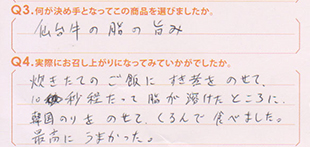 Q3.何が決め手となってこの商品を選びましたか。
仙台牛の脂の旨み
Q4.実際にお召し上がりになってみていかがでしたか。
炊きたてのご飯にすき煮をのせて、
10秒程たって脂が溶けたところに、
韓国のりをのせて、くるんで食べました。
最高にうまかった。